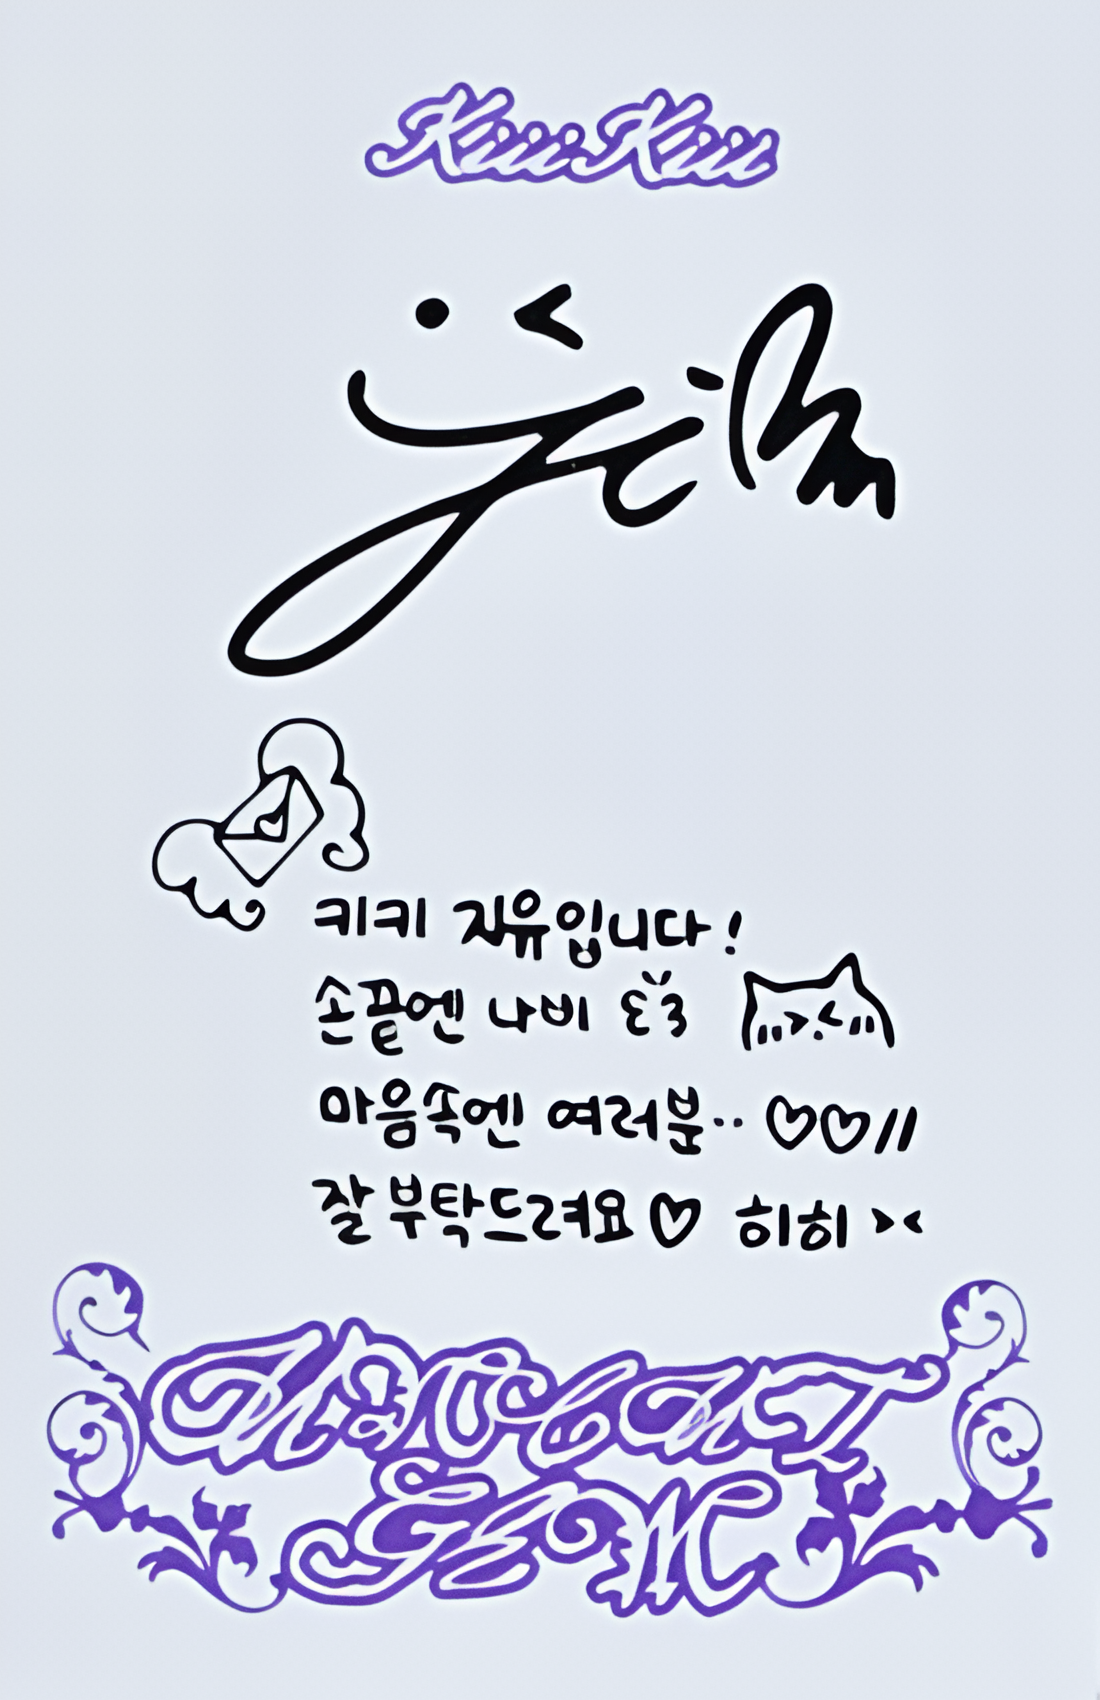 KiiiKiii
키키 지유입니다!
손끝엔 나비
마음속엔 여러분.. ♡♡//
잘 부탁드려요♡ 히히 ><
UNCUT
GEM